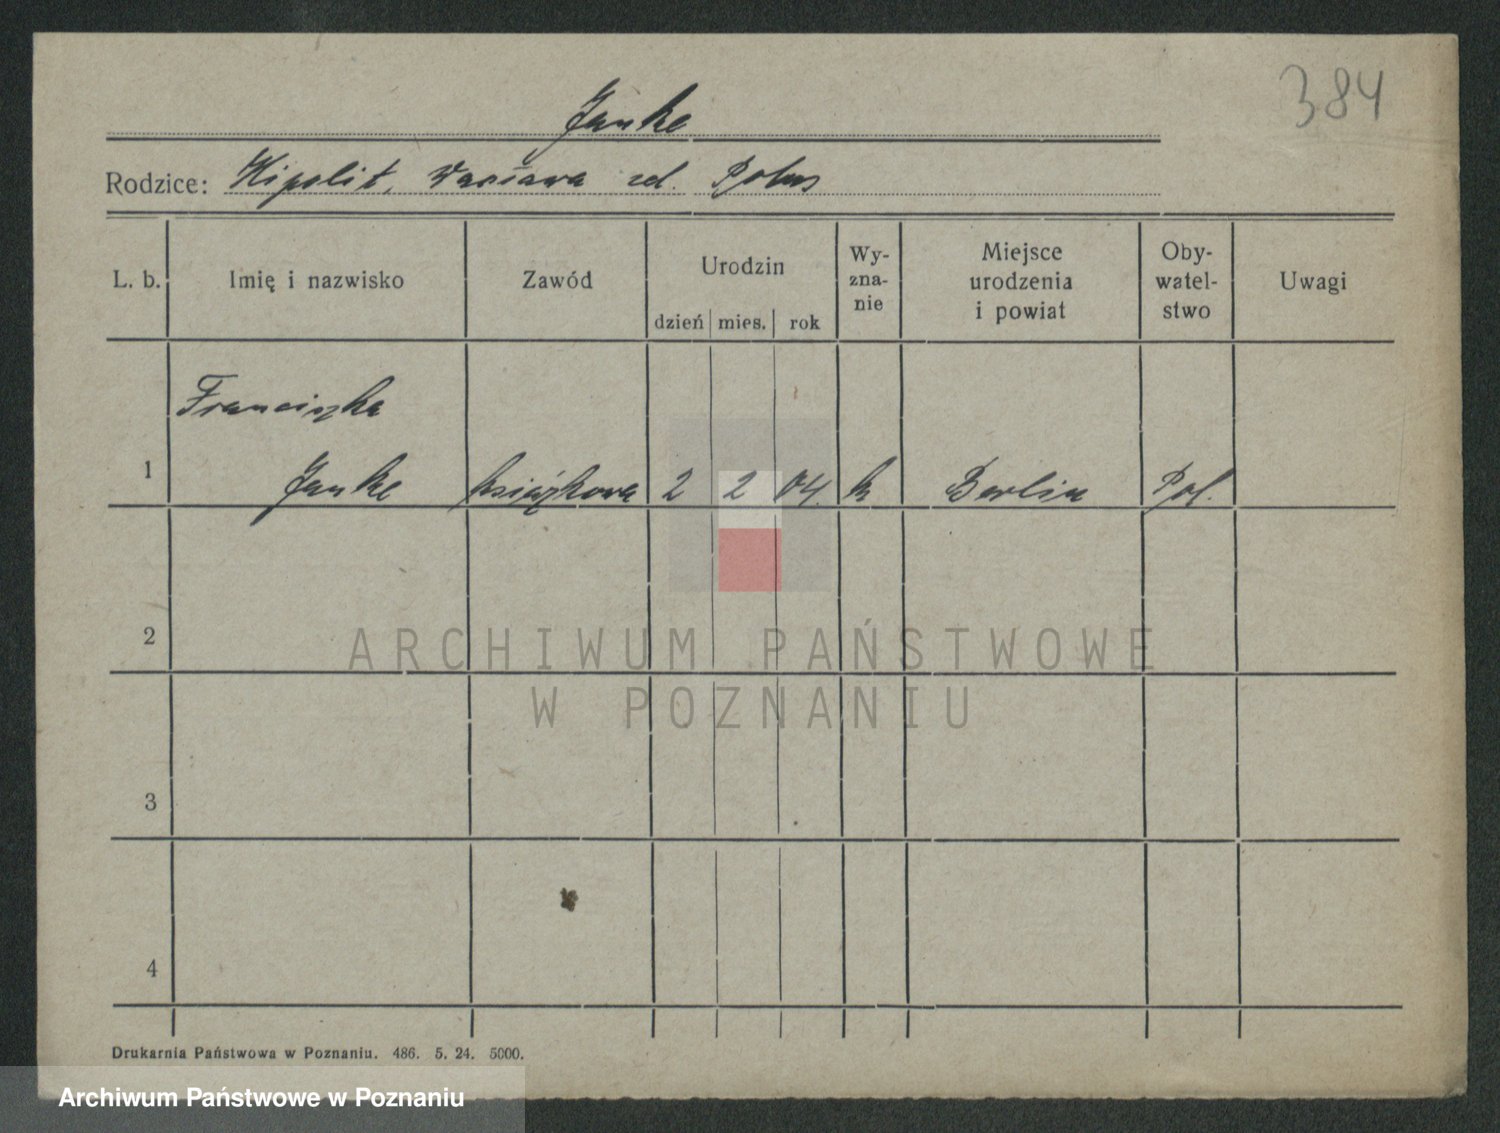 384
Janke
Rodzice: Hipolit, Wacława zd.
L. b. Imię i nazwisko Zawód Urodzin dzień mies. rok Wy-zna-nie Miejsce urodzenia i powiat Oby-watel-stwo Uwagi
Franciszka
1 Janke książkowa 2 2 04. k Berlin Pol.
2
ARCHIWUM PAŃSTWOWE
W POZNANIU
3
4
Drukarnia Państwowa w Poznaniu. 486. 5. 24. 5000.
Archiwum Państwowe w Poznaniu